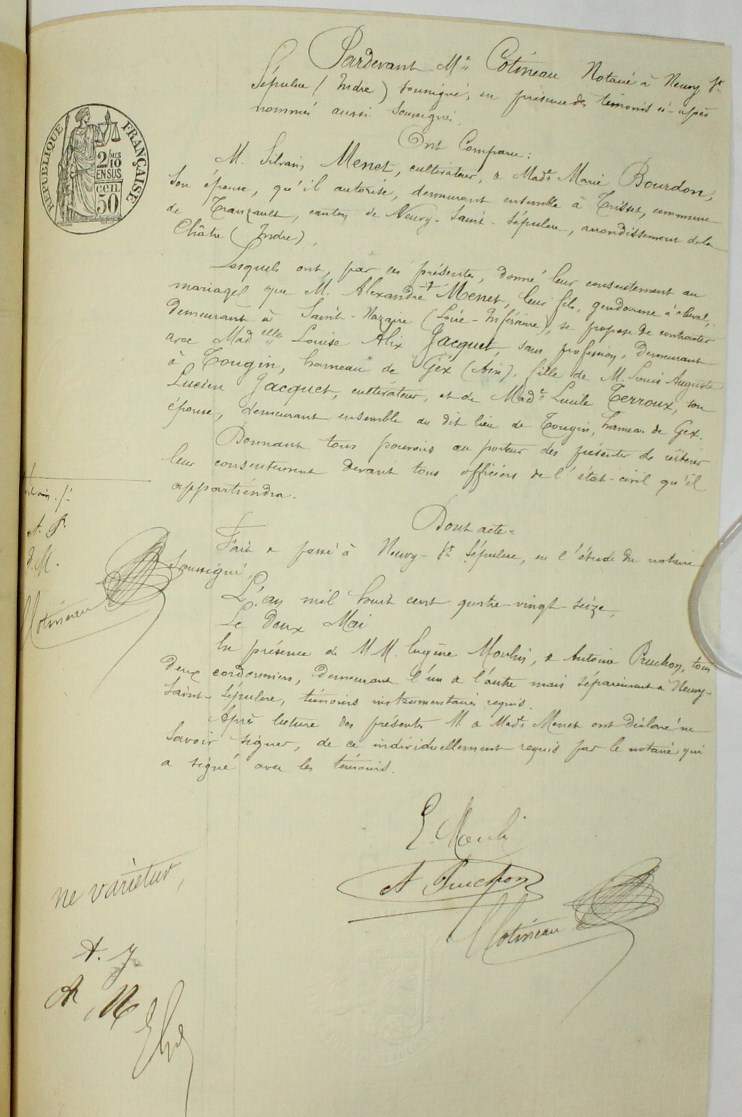 Pardevant Me Cotineau Notaire à Neuvy St
Sépulcre (Indre) soussigné, en présence des témoins ci-après
nommés aussi soussignés.
Ont Comparu:
M. Silvain Menet, cultivateur, & Made Marie Bourdon,
son épouse, qu'il autorise, demeurant ensemble à Crisset, commune
de Tranzault, canton de Neuvy-Saint-Sépulcre, arrondissement de la
Châtre (Indre),
Lesquels ont, par ces présentes, donné leur consentement au
mariage que M. Alexandre Menet, leur fils, gendarme à cheval,
demeurant à Saint-Nazaire (Loire-Inférieure), se propose de contracter
avec Madelle Louise Alix Jacquet, sans profession, demeurant
à Tougin, hameau de Gex (Ain), fille de M. Louis Auguste
Lucien Jacquet, cultivateur, et de Made Lucile Terroux, son
épouse, demeurant ensemble au dit lieu de Tougin, hameau de Gex.
Donnant tous pouvoirs au porteur des présentes de réitérer
leur consentement devant tous officiers de l'état-civil qu'il
appartiendra.
Dont acte=
Fait & passé à Neuvy-St Sépulcre, en l'étude du notaire
soussigné,
L'an mil huit cent quatre-vingt-seize,
Le deux Mai
En présence de MM Eugène Moulin, & Antoine Pruchon, tous
deux cordonniers, demeurant l'un & l'autre mais séparément à Neuvy-
Saint-Sépulcre, témoins instrumentaires requis.
Après lecture des présentes M & Made Menet ont déclaré ne
savoir signer, de ce individuellement requis par le notaire, qui
a signé avec les témoins.
E. Moulin
A Pruchon
Cotineau
RÉPUBLIQUE FRANÇAISE
2/10
EN SUS
50
Silvain /.
A. P.
E. M.
Cotineau
ne varietur,
A. J
A M